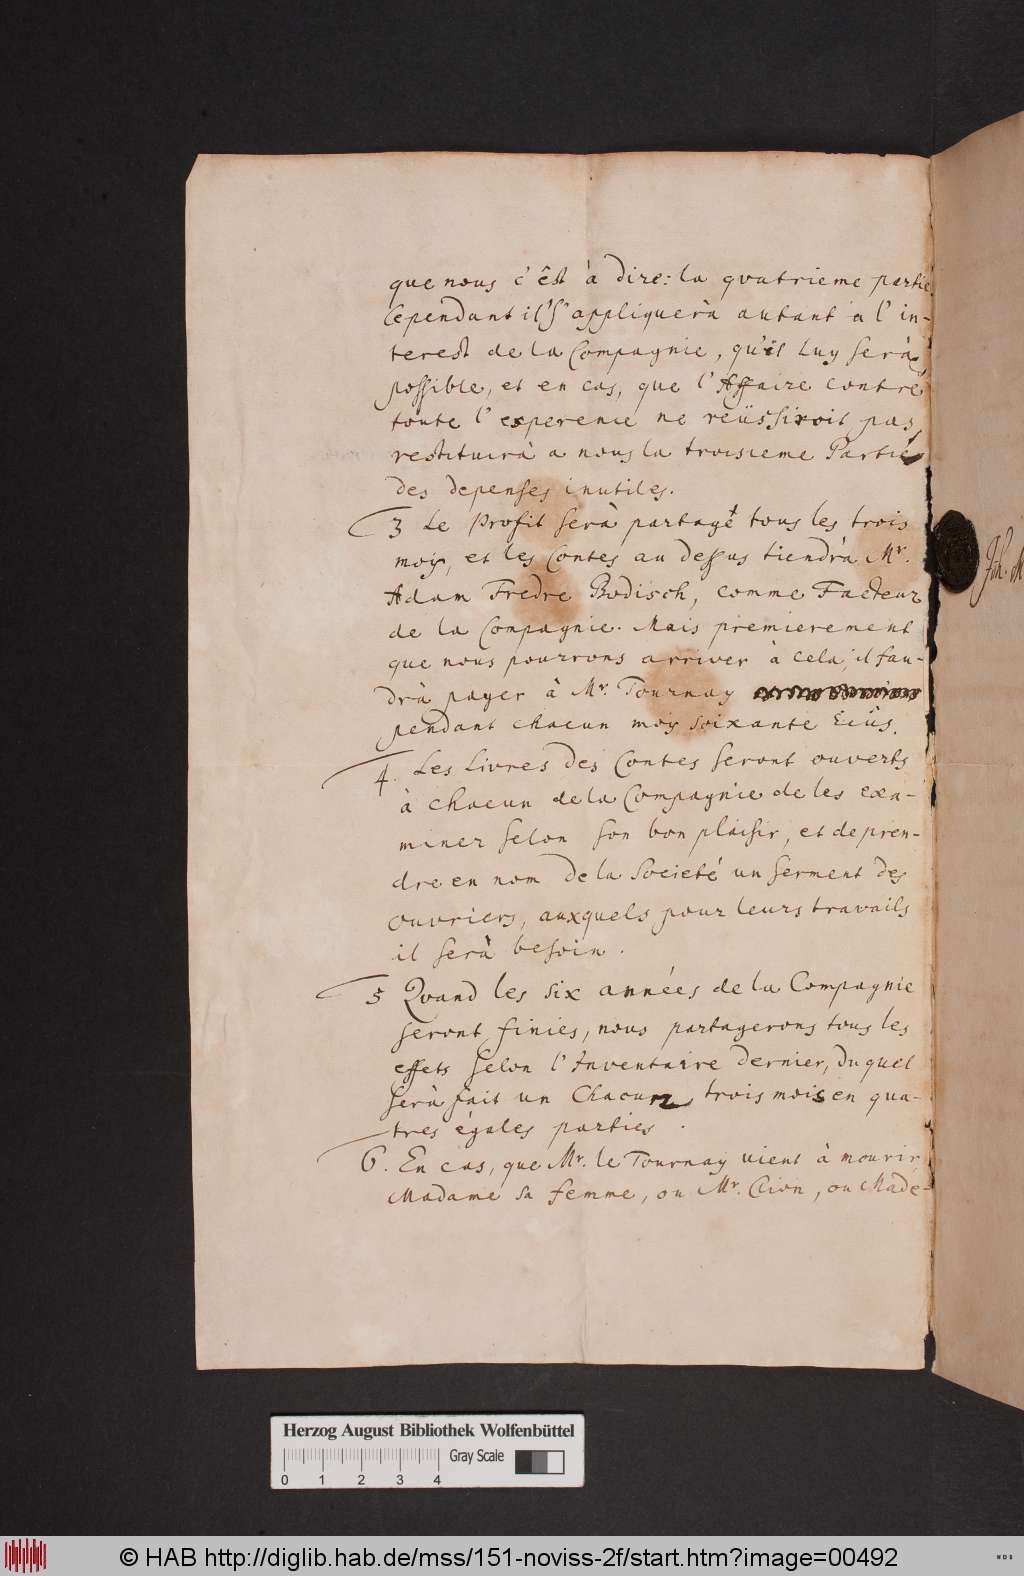 que nous c'êst à dire: la qvatrieme partie
Cependant il s'appliquerà autant a l'in-
terest de la Compagnie, qu'il Luy serà
possible, et en cas, que l'Affaire contre
toute l'experence ne reüssiroit pas
restituirà a nous la troisieme Partie
des depenses inutiles.
3 Le Profit serà partagé tous les trois
moys, et les Contes au dessus tiendrà Mr.
Adam Fredre Bodisch, comme Facteur
de la Compagnie. Mais premierement
que nous pourrons arriver à cela, il fau-
drà payer à Mr. Tournay
pendant chacun moy soixante Ecüs.
4. Les Livres des Contes seront ouverts
à chacun de la Compagnie de les exa-
miner selon son bon plaisir, et de pren-
dre en nom de la Societé un serment des
ouvriers, auxquels pour leurs travails
il serà besoin.
5 Qvand les six années de la Compagnie
seront finies, nous partagerons tous les
effets selon l'Inventaire dernier, du quel
serà fait un Chacun trois mois en qua-
tres égales parties.
6. En cas, que Mr. le Tournay vient à mourir
Madame sa femme, ou Mr. Cion, ou Made-
Joh. M
Herzog August Bibliothek Wolfenbüttel
Gray Scale
0 1 2 3 4
© HAB http://diglib.hab.de/mss/151-noviss-2f/start.htm?image=00492